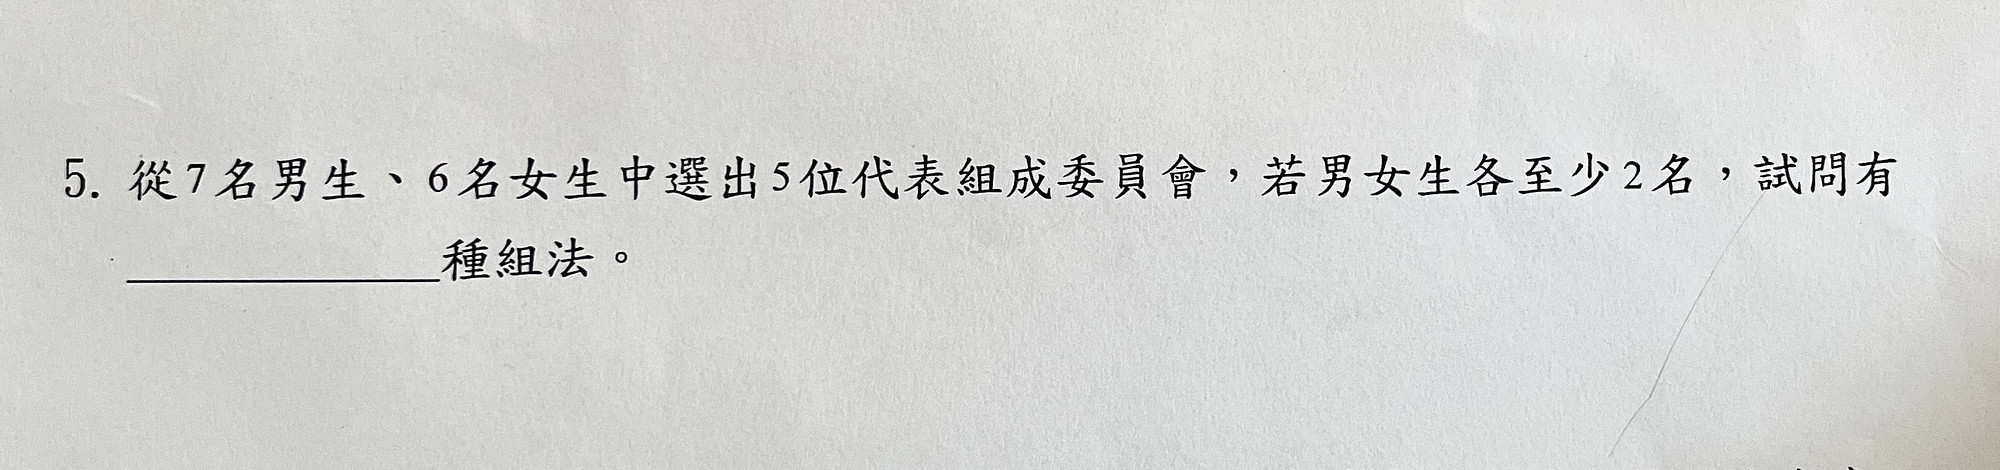 5. 從7名男生、6名女生中選出5位代表組成委員會，若男女生各至少2名，試問有
____________種組法。